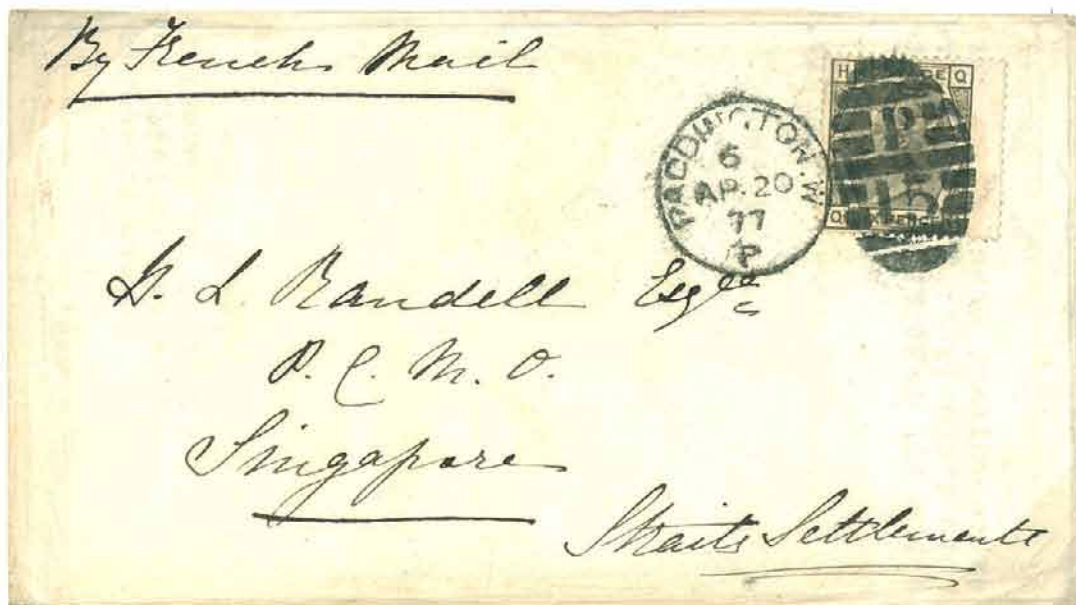 By French Mail
PADDINGTON.W
6
AP.20
77
P
H Q
P
15
Q
H. L. Randell Esqre
P. C. M. O.
Singapore
Straits Settlements